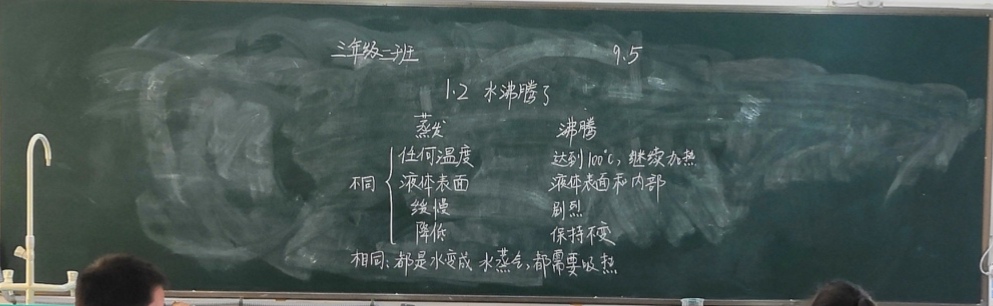 三年级二班 9.5
1.2 水沸腾了
蒸发 沸腾
任何温度 达到100℃,继续加热
不同 液体表面 液体表面和内部
缓慢 剧烈
降低 保持不变
相同:都是水变成水蒸气,都需要吸热